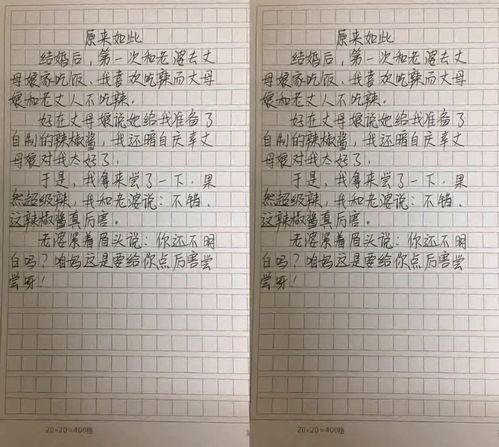 原来如此
结婚后，第一次和老婆去丈
母娘家吃饭、我喜欢吃辣而丈母
娘和老丈人不吃辣。
好在丈母娘说她给我准备了
自制的辣椒酱，我还暗自庆幸丈
母娘对我太好了！
于是，我拿来尝了一下，果
然超级辣，我和老婆说：不错，
这辣椒酱真厉害。
老婆紧着眉头说：你还不明
白吗？咱妈这是要给你点厉害尝
尝呀！
20×20=400格
原来如此
结婚后，第一次和老婆去丈
母娘家吃饭、我喜欢吃辣而丈母
娘和老丈人不吃辣。
好在丈母娘说她给我准备了
自制的辣椒酱，我还暗自庆幸丈
母娘对我太好了！
于是，我拿来尝了一下，果
然超级辣，我和老婆说：不错，
这辣椒酱真厉害。
老婆紧着眉头说：你还不明
白吗？咱妈这是要给你点厉害尝
尝呀！
20×20=400格